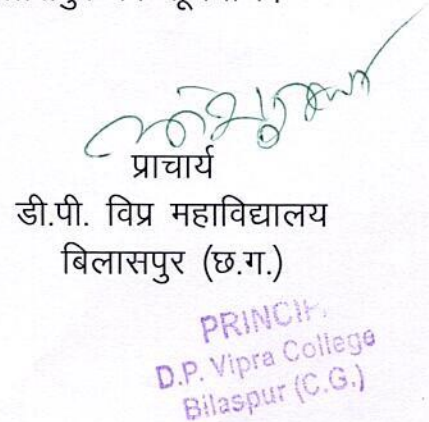 प्राचार्य
डी.पी. विप्र महाविद्यालय
बिलासपुर (छ.ग.)
D.P. Vipra College
Bilaspur (C.G.)